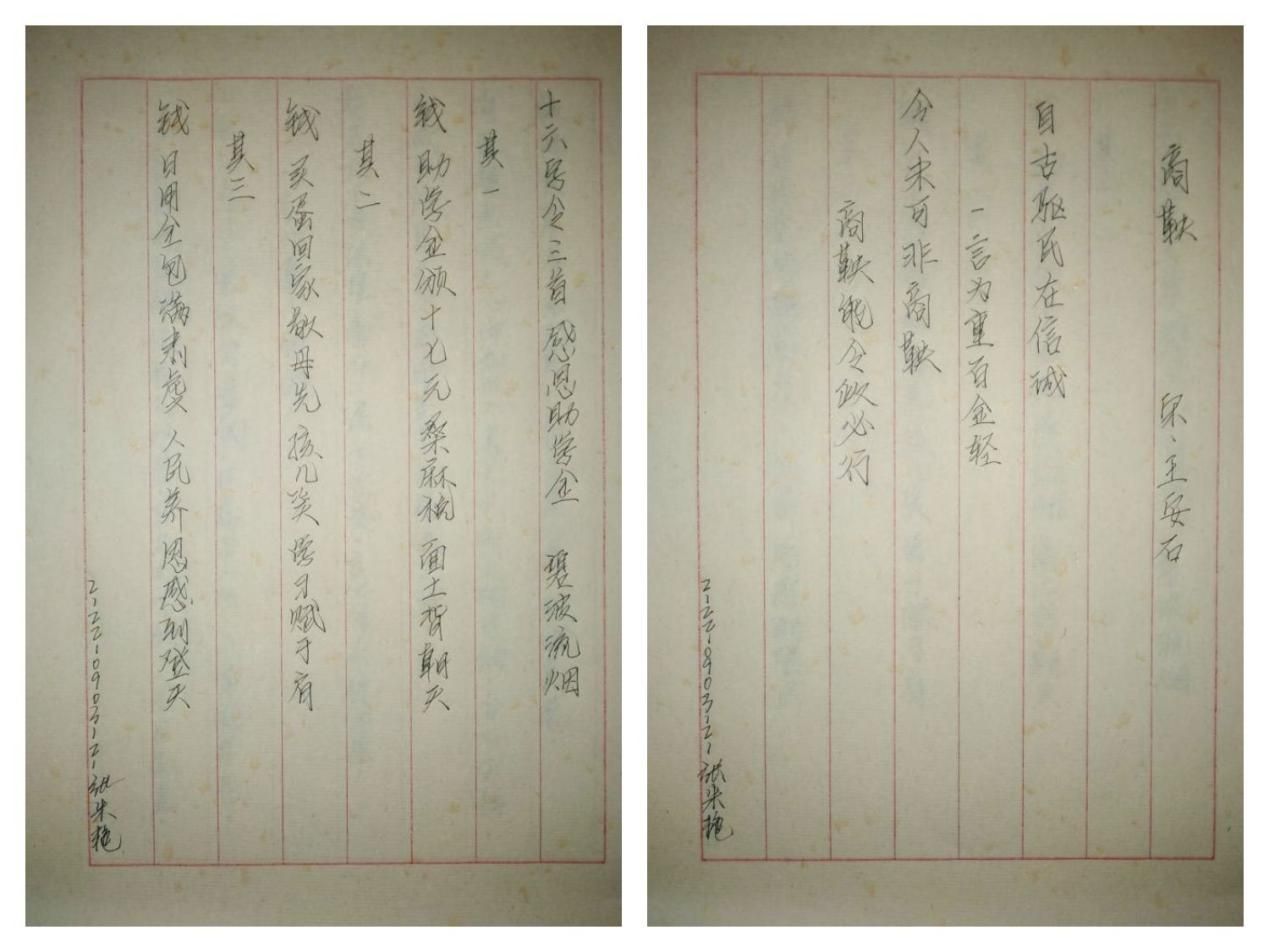 十六字令三首 感恩助学金 碧波流烟
其一
钱 助学金颁十七元 桑麻税 面土背朝天
其二
钱 买蛋回家敬母先 孩儿笑 学习赋于肩
其三
钱 日用全包满刺虔 人民养 恩感到登天
张朱艳
商鞅 宋·王安石
自古驱民在信诚
一言为重百金轻
今人未可非商鞅
商鞅能令政必行
张朱艳